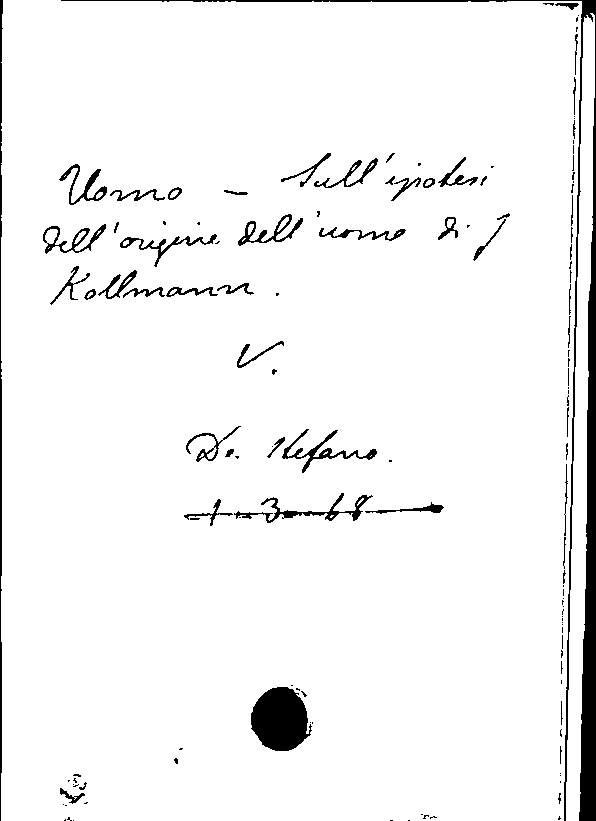 Uomo – Sull'ipotesi
dell'origine dell'uomo di J
Kollmann.
V.
De Stefano.
1-3-68